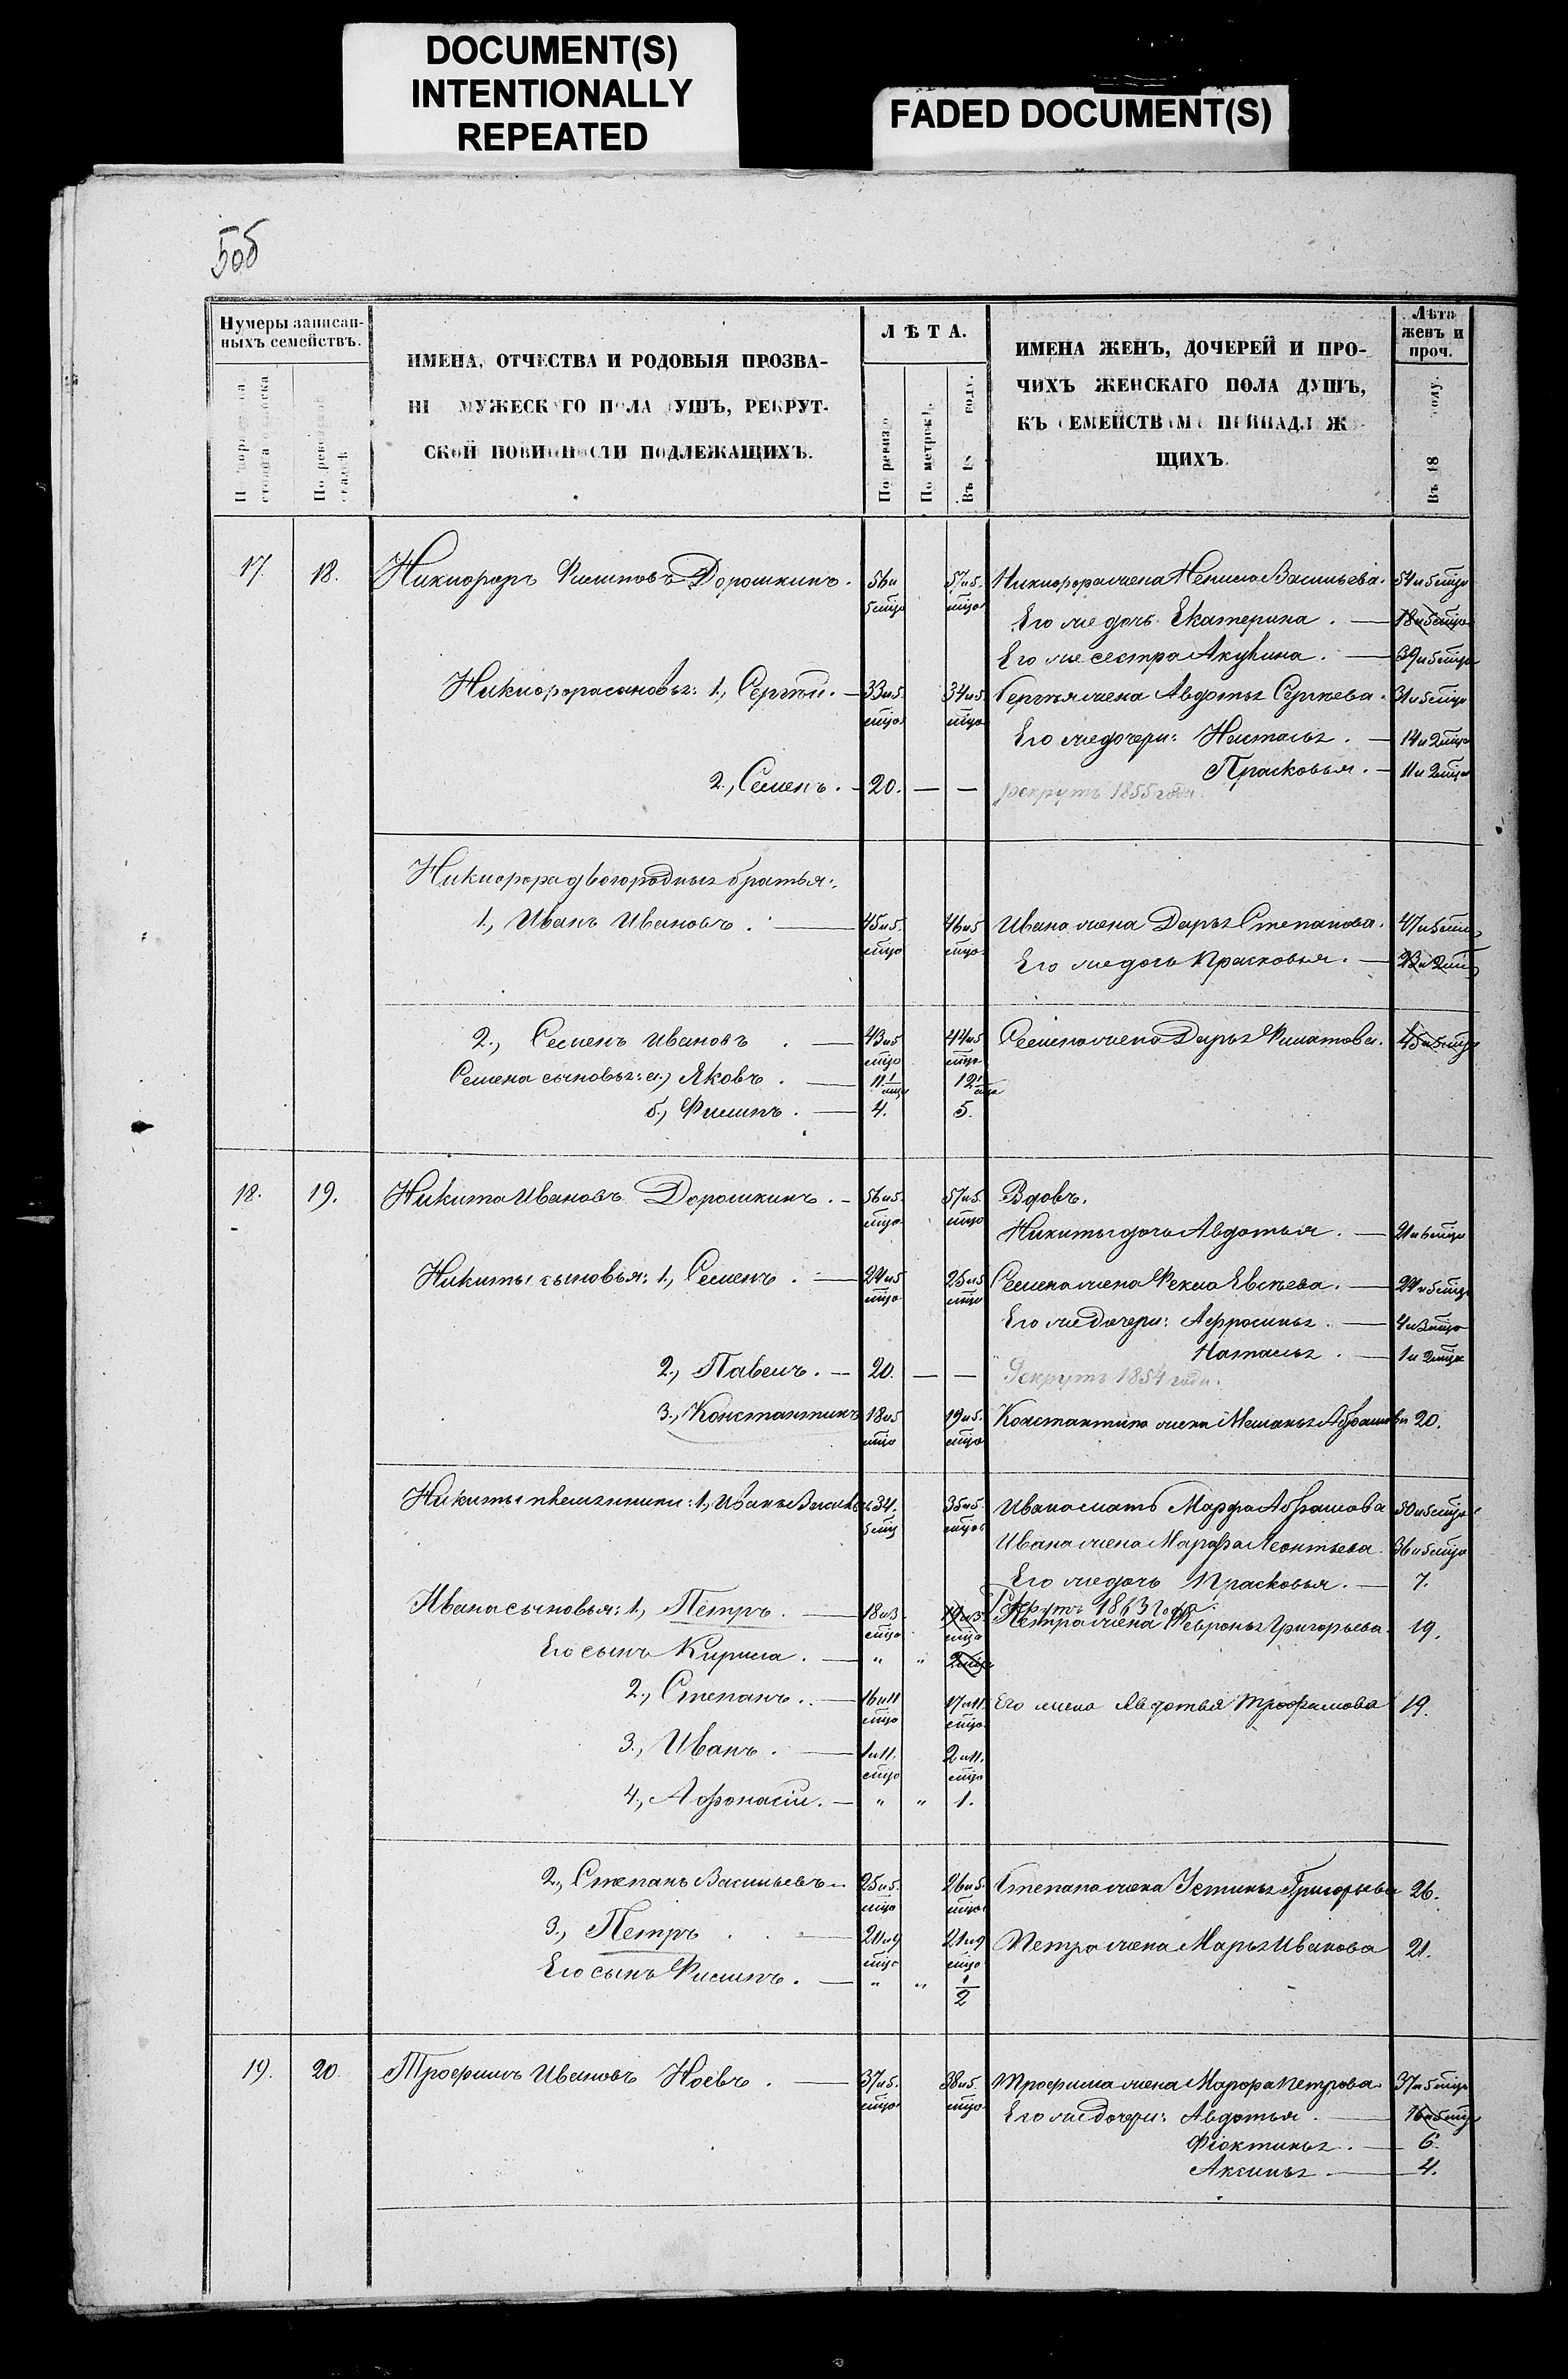 DOCUMENT(S)
INTENTIONALLY
REPEATED
FADED DOCUMENT(S)
506
Нумеры записан-
ныхъ семействъ.
ИМЕНА, ОТЧЕСТВА И РОДОВЫЯ ПРОЗВА-
МУЖЕСКАГО ПОЛА ДУШЪ, РЕКРУТ-
СКОЙ ПОВИННОСТИ ПОДЛЕЖАЩИХЪ.
ЛѢТА.
По ревизіи
По метрикѣ
Въ 18 году.
ИМЕНА ЖЕНЪ, ДОЧЕРЕЙ И ПРО-
ЧИХЪ ЖЕНСКАГО ПОЛА ДУШЪ,
КЪ СЕМЕЙСТВАМЪ ПРИНАДЛЕЖ
ЩИХЪ
Лѣта
женъ и
проч.
Въ 18 году.
17. 18. Никифоръ Филиповъ Дорошкинъ. 56 и 5 мцо 57 и 5. мцо Никифора жена Ненила Васильева. 54 и 5 мцо
Его же дочь Екатерина. 18 и 5 мцо
Его же сестра Акулина. 39 и 5 мцо
Никифора сыновья: 1., Сергѣй. 33 и 5 мцо 34 и 5 мцо Сергѣя жена Авдотья Сергѣева. 31 и 5 мцо
Его же дочери: Настасья. 14 и 2 мцо
Прасковья. 11 и 2 мцо
2., Семенъ. 20. — — рекрутъ 1855 года.
Никифора двоюродныя братья:
1., Иванъ Ивановъ. 45 и 5. мцо 46 и 5 мцо Ивана жена Дарья Степанова. 47 и 5 мцо
Его же дочь Прасковья. 23 и 2 мцо
2., Семенъ Ивановъ. 43 и 5 мцо 44 и 5 мцо Семена жена Дарья Филатова. 45 и 5 мцо
Семена сыновья: а.) Яковъ. 11 1/ мцо 12 1/ мцо
б., Филипъ. 4. 5.
18. 19. Никита Ивановъ Дорошкинъ. 56 и 5 мцо 57 и 5. мцо Вдовъ.
Никиты дочь Авдотья. 21 и 6 мцо
Никиты сыновья: 1., Семенъ. 24 и 5 мцо 25 и 5 мцо Семена жена Фекла Евсѣева. 24 и 5 мцо
Его же дочери: Афросинья. 4 и 3 мцо
Наталья. 1 и 2 мцо
2., Павелъ. 20. — — Рекрутъ 1854 года.
3., Константинъ 18 и 5 мцо 19 и 5. мцо Константина жена Меланья Абрамова 20.
Никиты племянники: 1., Иванъ Васильевъ 34. 5 мцо 35 и 5. мцо Ивана мать Марфа Абрамова 50 и 5 мцо
Ивана жена Марфа Леонтьева. 36 и 5 мцо
Его же дочь Прасковья. 7.
Рекрутъ 1863 года.
Ивана сыновья: 1., Петръ. 18 и 3 мцо 19 и 3. мцо Петра жена Февронья Григорьева. 19.
Его сынъ Кирила. " " 2 мцо
2., Степанъ. 16 и 11 мцо 17 и 11. мцо Его жена Авдотья Трофимова 19.
3., Иванъ. 1 и 11. мцо 2 и 11. мцо
4., Афонасій. " " 1.
2., Степанъ Васильевъ 25 и 5. мцо 26 и 5. мцо Степана жена Устинья Григорьева 26.
3., Петръ 20 и 9 мцо 21 и 9 мцо Петра жена Марья Иванова 21.
Его сынъ Филипъ. " " 1/2
19. 20. Трофимъ Ивановъ Ноевъ. 37 и 5. мцо 38 и 5 мцо Трофима жена Марфа Петрова. 37 и 5 мцо
Его же дочери: Авдотья. 16 и 5 мцо
Фіоктинья. 6.
Аксинья 4.